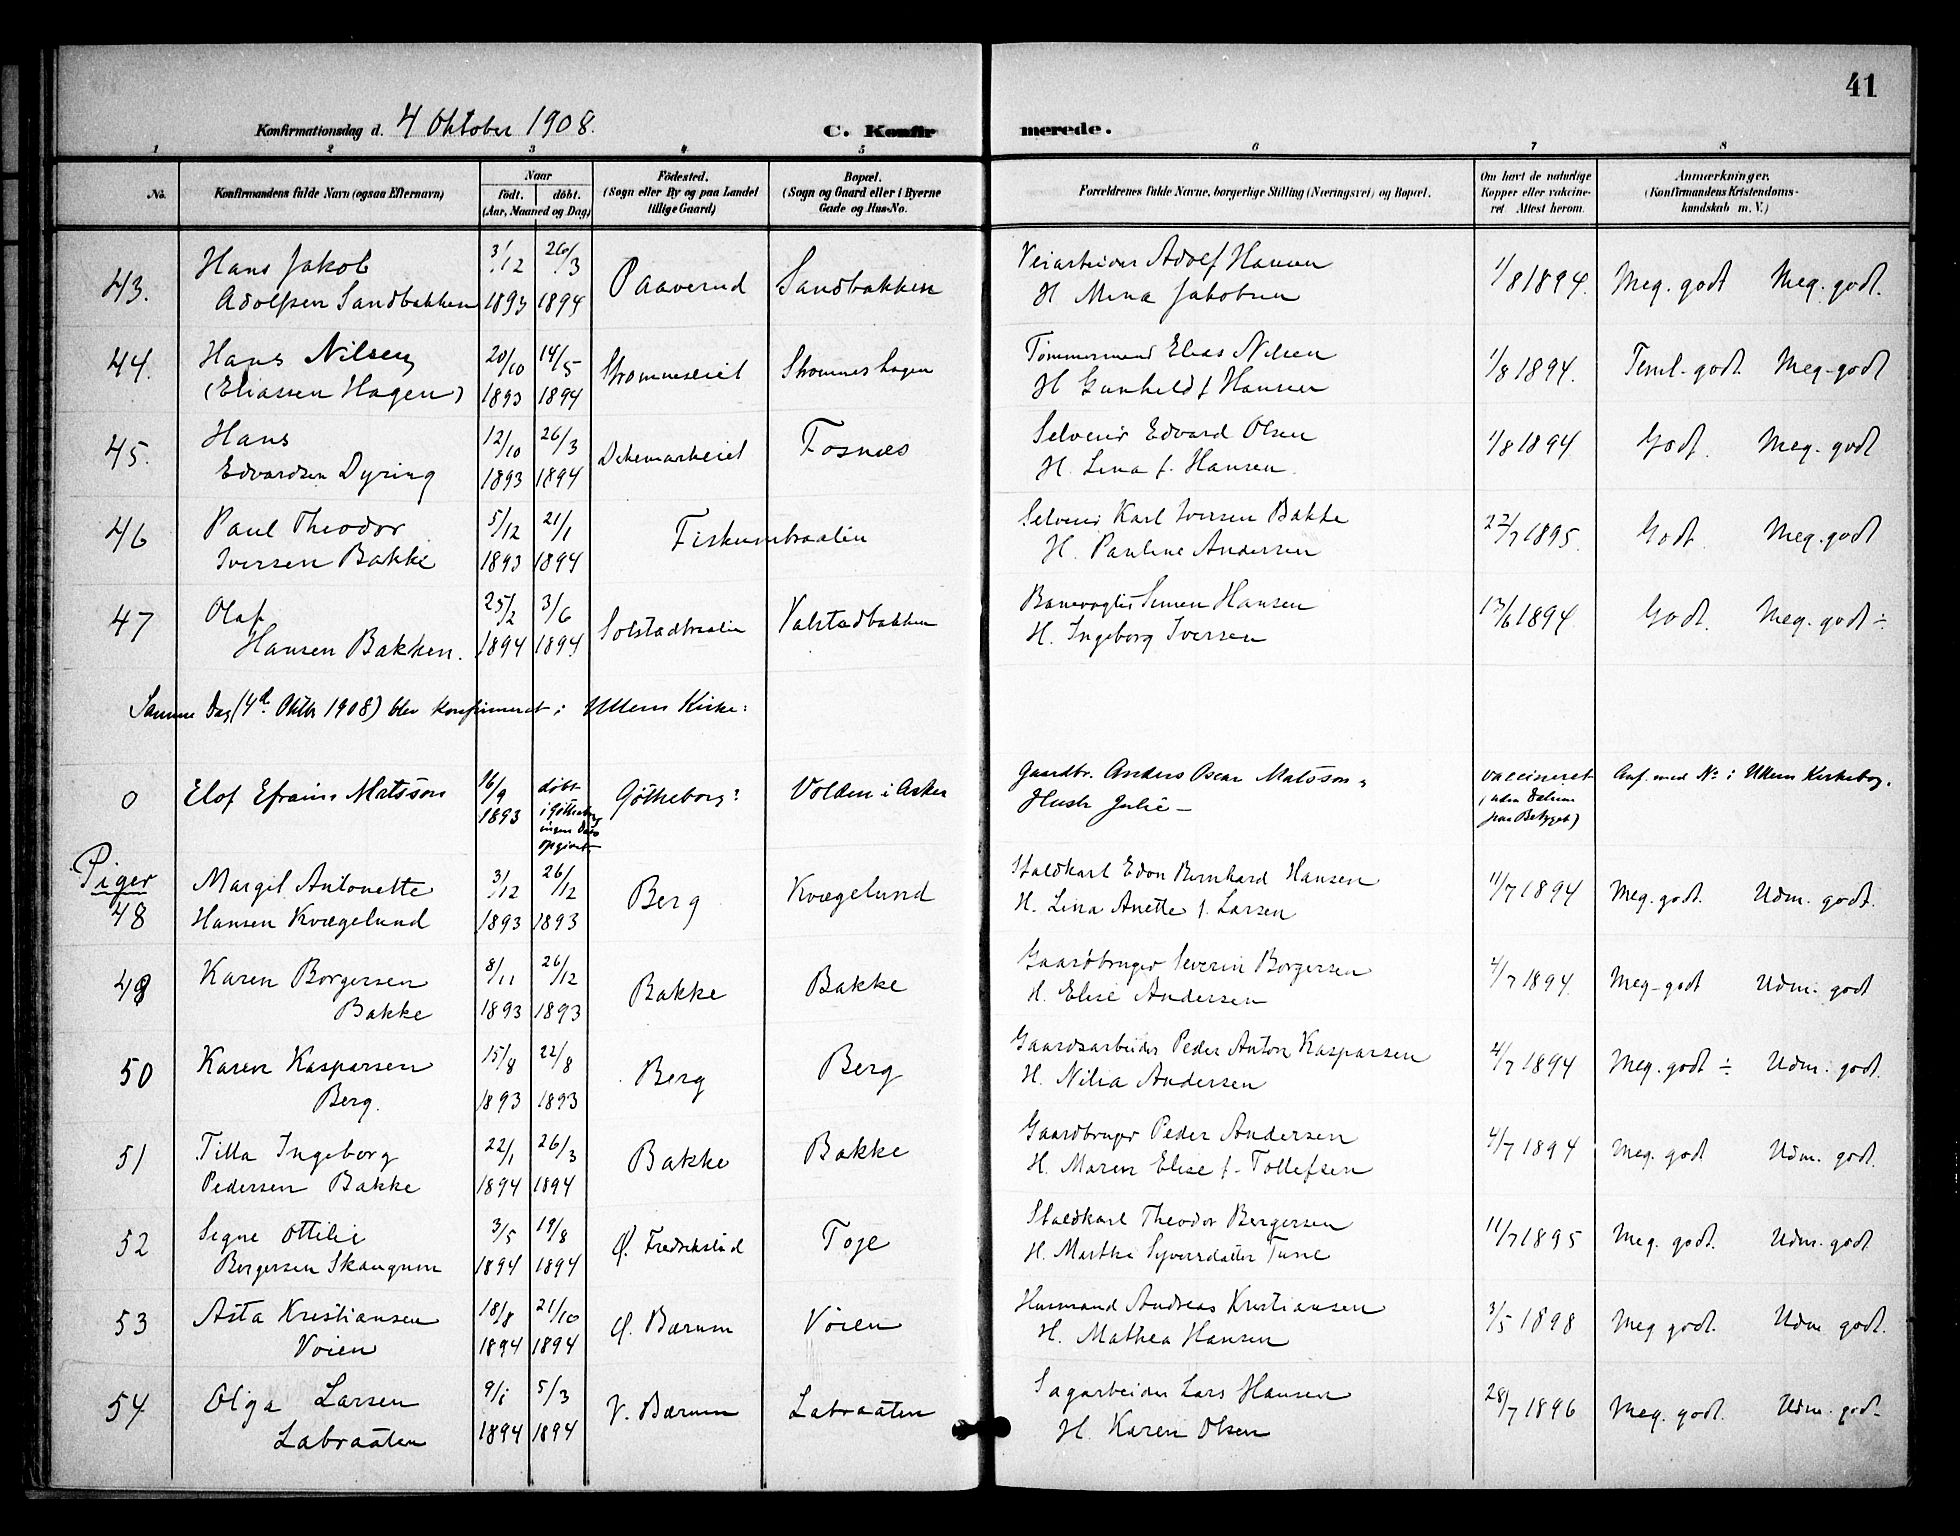 41
Konfirmationsdag d. 4 Oktober 1908.
C. Konfirmerede.
1 2 3 4 5 6 7 8
No.
Konfirmandens fulde Navn (ogsaa Efternavn)
Naar
født. døbt.
(Aar, Maaned og Dag)
Fødested.
(Sogn eller By og paa Landet
tillige Gaard)
Bopæl.
(Sogn og Gaard eller i Byerne
Gade og Hus-No.
Forældrenes fulde Navne, borgerlige Stilling (Næringsvei) og Bopæl.
Om havt de naturlige
Kopper eller vakcine-
ret Attest herom.
Anmærkninger.
(Konfirmandens Kristendoms-
kundskab m. V.)
43. Hans Jakob 3/12 26/3 Paaverud Sandbakken Veiarbeider Adolf Hansen 1/8 1894. Meg. godt Meg. godt.
Adolfsen Sandbakken 1893 1894 H Mina Jakobsen
44. Hans Nilsen 20/10 14/5 Strømseiet Strømnes hagen Tømmermand Elias Nilsen 1/8 1894. Teml. godt Meg. godt
(Eliassen Hagen) 1893 1894 H Gunhild f Hansen
45. Hans 12/10 26/3 Fosnæs Selveier Edvard Olsen 1/8 1894 Godt. Meg. godt
Edvardsen Dyring 1893 1894 H. Lina f. Hansen.
46 Paul Theodor 5/12 21/1 Fiskumbraatin Selveier Karl Iversen Bakke 22/7 1895. Godt. Meg. godt
Iversen Bakke 1893 1894 H. Pauline Andersen
47 Olaf 25/2 3/6 Solstadbraatin Valstadbakken Banevogter Simen Hansen 13/6 1894. Godt. Meg. godt ÷
Hansen Bakken. 1894 1894 H. Ingeborg Iversen
Samme Dag (4de Oktbr 1908) blev konfirmeret i Ullern Kirke:
0 Elof Efraim Matsson 16/9 1893 døbt Götheborg: Volden i Asker Gaardbr. Anders Oscar Matsson, vaccineret Anf. med No i Ullern Kirkebog.
i Götheborg
ingen Dato
opgivet Hustr Julie – (uden Datum
paa Betyget)
Piger
48 Margit Antonette 3/12 26/12 Berg Kvægelund Staldkarl Edvn Bernhard Hansen 11/7 1894 Meg. godt. Udm. godt.
Hansen Kvægelund 1893 1893 H. Lina Anette f. Larsen
49 Karen Borgersen 8/11 26/12 Bakke Bakke Gaardbruger Severin Borgersen 4/7 1894. Meg. godt Udm. godt
Bakke 1893 1893 H. Elise Andersen
50 Karen Kaspersen 15/8 22/8 Berg Berg Gaardsarbeider Peder Anton Kasparsen 4/7 1894 Meg. godt ÷ Udm. godt.
Berg. 1893 1893 H. Nilia Andersen
51 Tilla Ingeborg 22/1 26/3 Bakke Bakke Gaardbruger Peder Andersen 4/7 1894 Meg. godt Udm. godt.
Pedersen Bakke 1894 1894 H. Maren Elise f. Tollefsen
52 Signe Ottilie 3/5 19/8 Ø. Fredrikstad Toje Staldkarl Theodor Bergersen 11/7 1895 Meg. godt. Udm. godt
Bergersen Skaugum 1894 1894 H. Marthe Syversdatter Tune
53 Asta Kristiansen 18/8 21/10 Ø. Bærum Voien Husmand Andreas Kristiansen 3/5 1898 Meg godt. Udm godt.
Voien 1894 1894 H. Mathea Hansen
54 Olga Larsen 9/1 5/3 V. Bærum Labraaten Sagarbeider Lars Hansen 28/7 1896 Meg. godt. Udm. godt
Labraaten 1894 1894 H. Karen Olsen